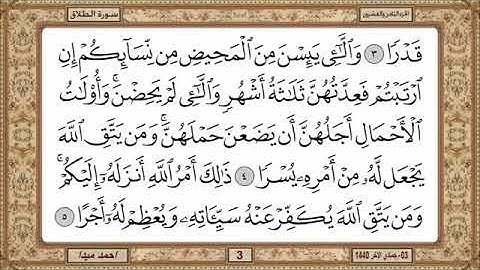 الجزء الثامن والعشرون
سورة الطلاق
قَدْرًا ٣ وَٱلَّٰٓـِٔي يَئِسْنَ مِنَ ٱلْمَحِيضِ مِن نِّسَآئِكُمْ إِنِ
ٱرْتَبْتُمْ فَعِدَّتُهُنَّ ثَلَٰثَةُ أَشْهُرٍ وَٱلَّٰٓـِٔي لَمْ يَحِضْنَ ۚ وَأُو۟لَٰتُ
ٱلْأَحْمَالِ أَجَلُهُنَّ أَن يَضَعْنَ حَمْلَهُنَّ ۚ وَمَن يَتَّقِ ٱللَّهَ
يَجْعَل لَّهُۥ مِنْ أَمْرِهِۦ يُسْرًا ٤ ذَٰلِكَ أَمْرُ ٱللَّهِ أَنزَلَهُۥٓ إِلَيْكُمْ ۚ
وَمَن يَتَّقِ ٱللَّهَ يُكَفِّرْ عَنْهُ سَيِّـَٔاتِهِۦ وَيُعْظِمْ لَهُۥٓ أَجْرًا ٥
03- جمادى الآخر 1440
3
/احمد عيد/